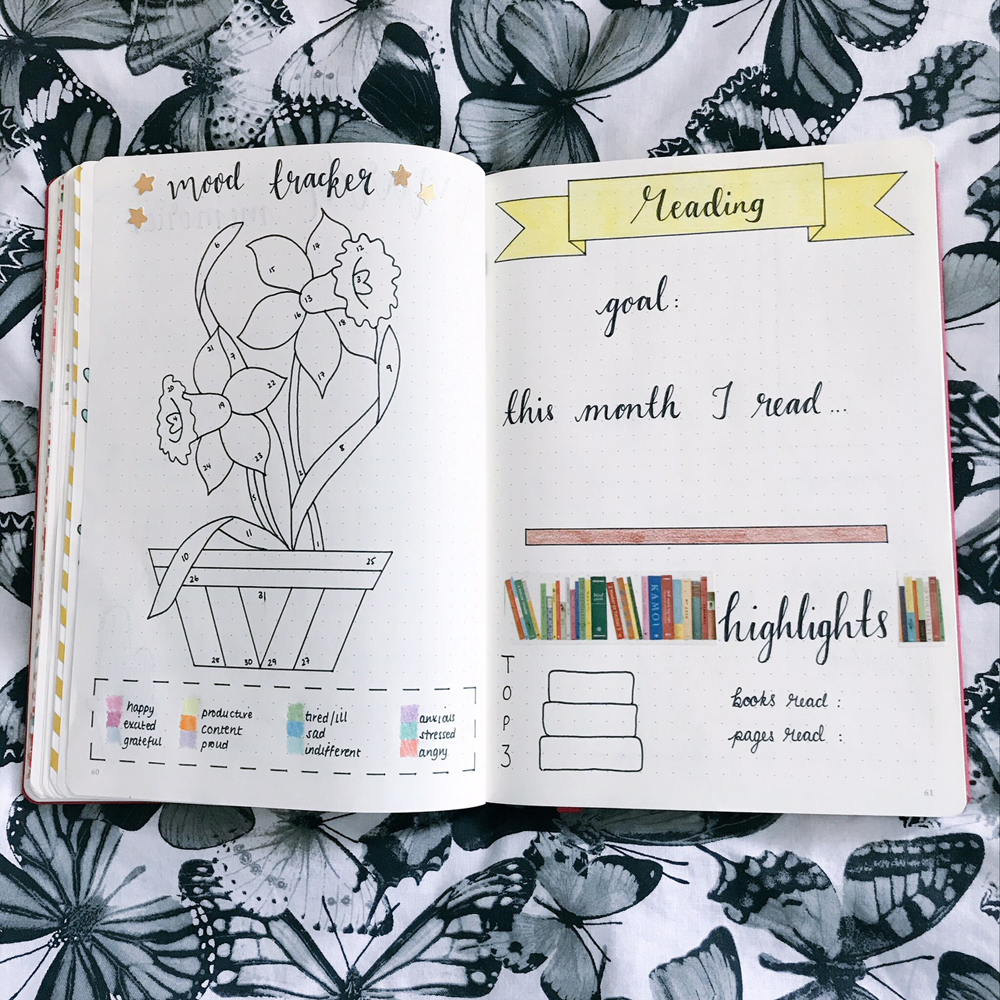 mood tracker
6
14
12
15
3
13
16
18
21
7
9
17
20
22
19
8
24
23
2
5
11
10
25
26
31
28 30 29 27
happy
excited
grateful
productive
content
proud
tired/ill
sad
indifferent
anxious
stressed
angry
60
Reading
goal:
this month I read...
highlights
TOP 3
books read :
pages read :
61